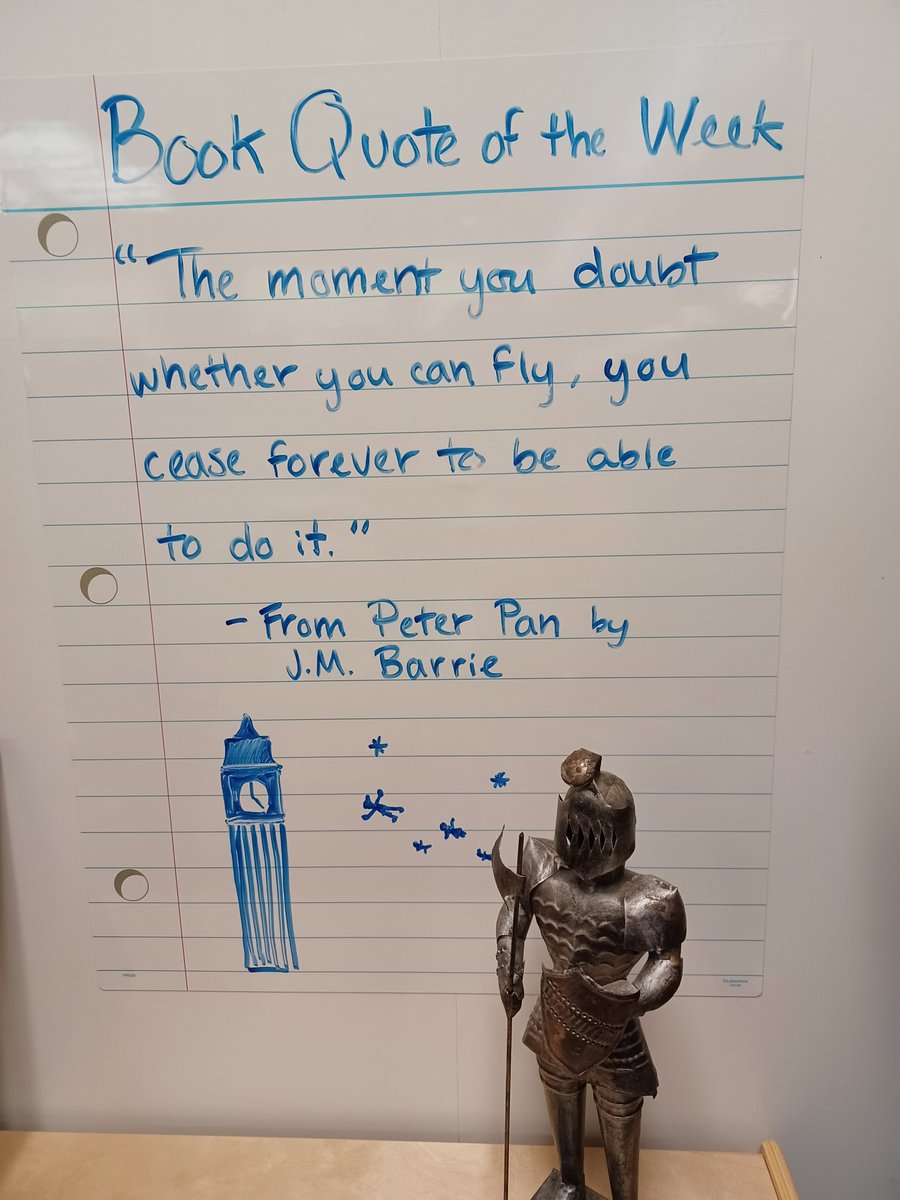 Book Quote of the Week
"The moment you doubt
whether you can fly, you
cease forever to be able
to do it."
- From Peter Pan by
J.M. Barrie